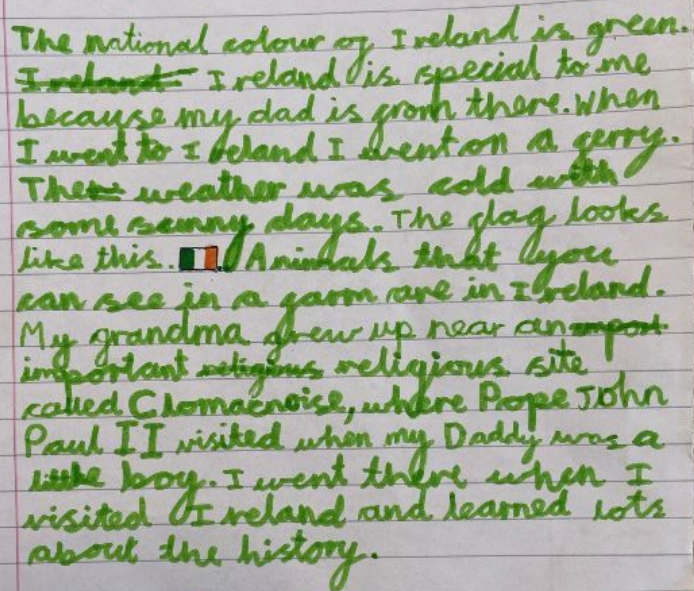 The national colour of Ireland is green.
Ireland Ireland is special to me
because my dad is from there. When
I went to Ireland I went on a ferry.
The weather was cold with
some sunny days. The flag looks
like this. Animals that you
can see in a farm are in Ireland.
My grandma grew up near an import
important religious religious site
called Clomacnoise, where Pope John
Paul II visited when my Daddy was a
little boy. I went there when I
visited Ireland and learned lots
about the history.